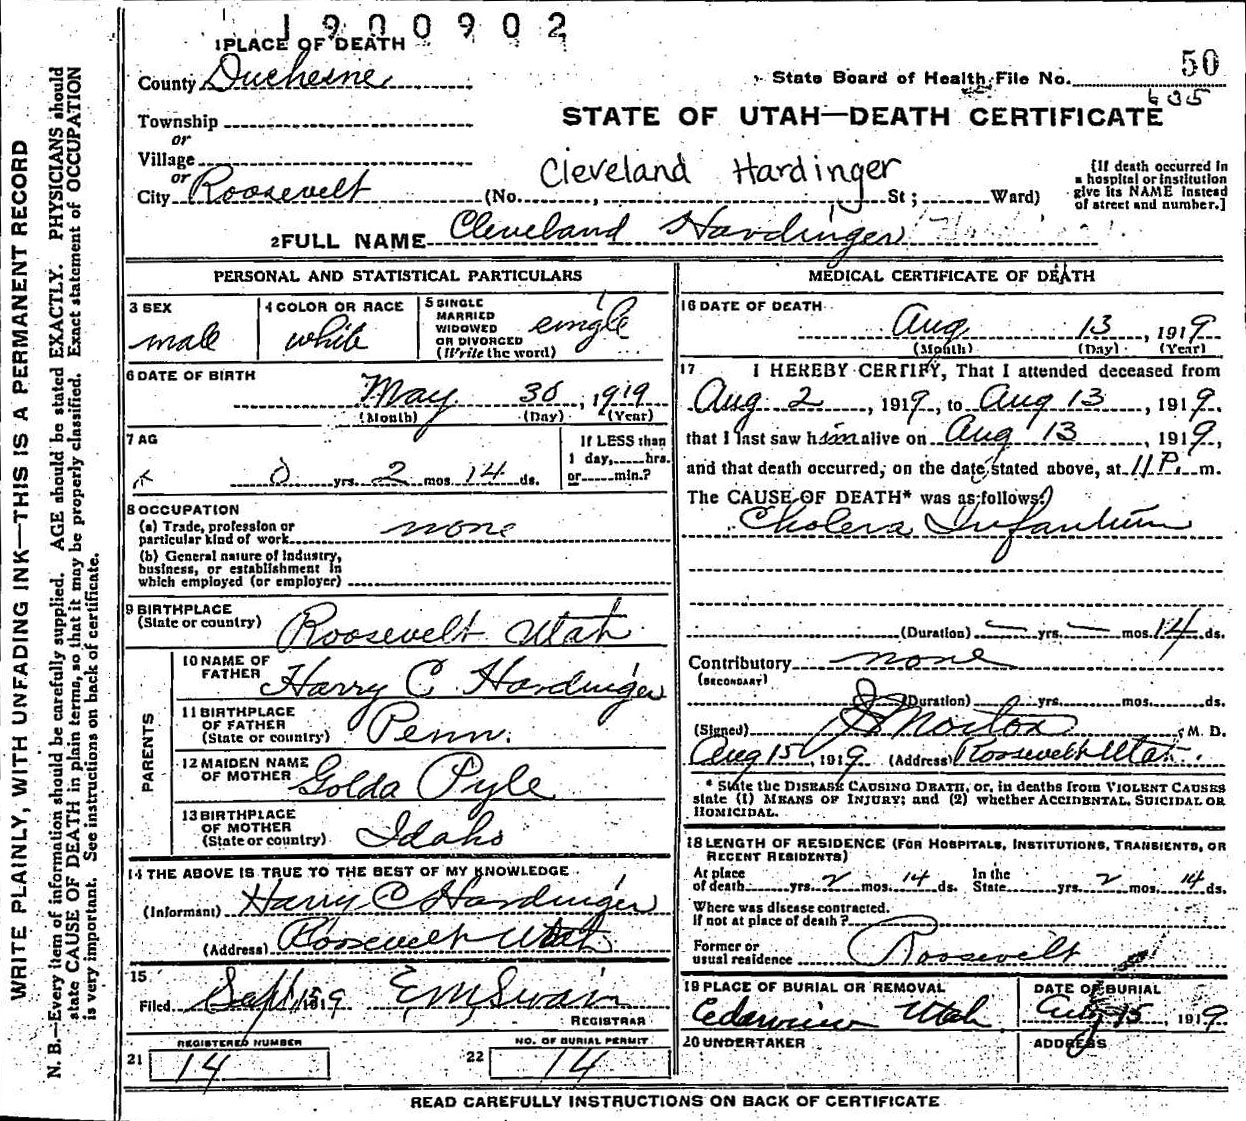 1900902
1 PLACE OF DEATH
County Duchesne
State Board of Health File No. 50
635
STATE OF UTAH—DEATH CERTIFICATE
Township
or
Village
Cleveland Hardinger
or
City Roosevelt (No. , St ; Ward)
[If death occurred in a hospital or institution give its NAME instead of street and number.]
2 FULL NAME Cleveland Hardinger
PERSONAL AND STATISTICAL PARTICULARS
3 SEX male
4 COLOR OR RACE white
5 SINGLE MARRIED WIDOWED OR DIVORCED (Write the word) single
6 DATE OF BIRTH
May 30, 1919
(Month) (Day) (Year)
7 AG
0 yrs. 2 mos. 14 ds.
If LESS than 1 day, hrs. or min.?
8 OCCUPATION
(a) Trade, profession or particular kind of work none
(b) General nature of industry, business, or establishment in which employed (or employer)
9 BIRTHPLACE
(State or country) Roosevelt Utah
PARENTS
10 NAME OF FATHER Harry C Hardinger
11 BIRTHPLACE OF FATHER (State or country) Penn.
12 MAIDEN NAME OF MOTHER Golda Pyle
13 BIRTHPLACE OF MOTHER (State or country) Idaho
14 THE ABOVE IS TRUE TO THE BEST OF MY KNOWLEDGE
(Informant) Harry C Hardinger
(Address) Roosevelt Utah
15
Filed Sept 15 1919 E M Swain
REGISTRAR
REGISTERED NUMBER
21 14
NO. OF BURIAL PERMIT
22 14
MEDICAL CERTIFICATE OF DEATH
16 DATE OF DEATH
Aug 13, 1919
(Month) (Day) (Year)
17 I HEREBY CERTIFY, That I attended deceased from
Aug 2, 1919, to Aug 13, 1919,
that I last saw him alive on Aug 13, 1919,
and that death occurred, on the date stated above, at 11 P. m.
The CAUSE OF DEATH* was as follows:
Cholera Infantum
(Duration) — yrs. — mos. 14 ds.
Contributory none
(SECONDARY)
(Duration) yrs. mos. ds.
(Signed) J S Morton, M. D.
Aug 15, 1919 (Address) Roosevelt Utah.
* State the DISEASE CAUSING DEATH, or, in deaths from VIOLENT CAUSES
state (1) MEANS OF INJURY; and (2) whether ACCIDENTAL, SUICIDAL OR
HOMICIDAL.
18 LENGTH OF RESIDENCE (FOR HOSPITALS, INSTITUTIONS, TRANSIENTS, OR
RECENT RESIDENTS)
At place of death yrs. 2 mos. 14 ds. In the State yrs. 2 mos. 14 ds.
Where was disease contracted.
If not at place of death?
Former or usual residence Roosevelt
19 PLACE OF BURIAL OR REMOVAL
Cedarview Utah
DATE OF BURIAL
Aug 15, 1919
20 UNDERTAKER
ADDRESS
READ CAREFULLY INSTRUCTIONS ON BACK OF CERTIFICATE
WRITE PLAINLY, WITH UNFADING INK—THIS IS A PERMANENT RECORD
N. B.—Every item of information should be carefully supplied. AGE should be stated EXACTLY. PHYSICIANS should
state CAUSE OF DEATH in plain terms, so that it may be properly classified. Exact statement of OCCUPATION
is very important. See instructions on back of certificate.